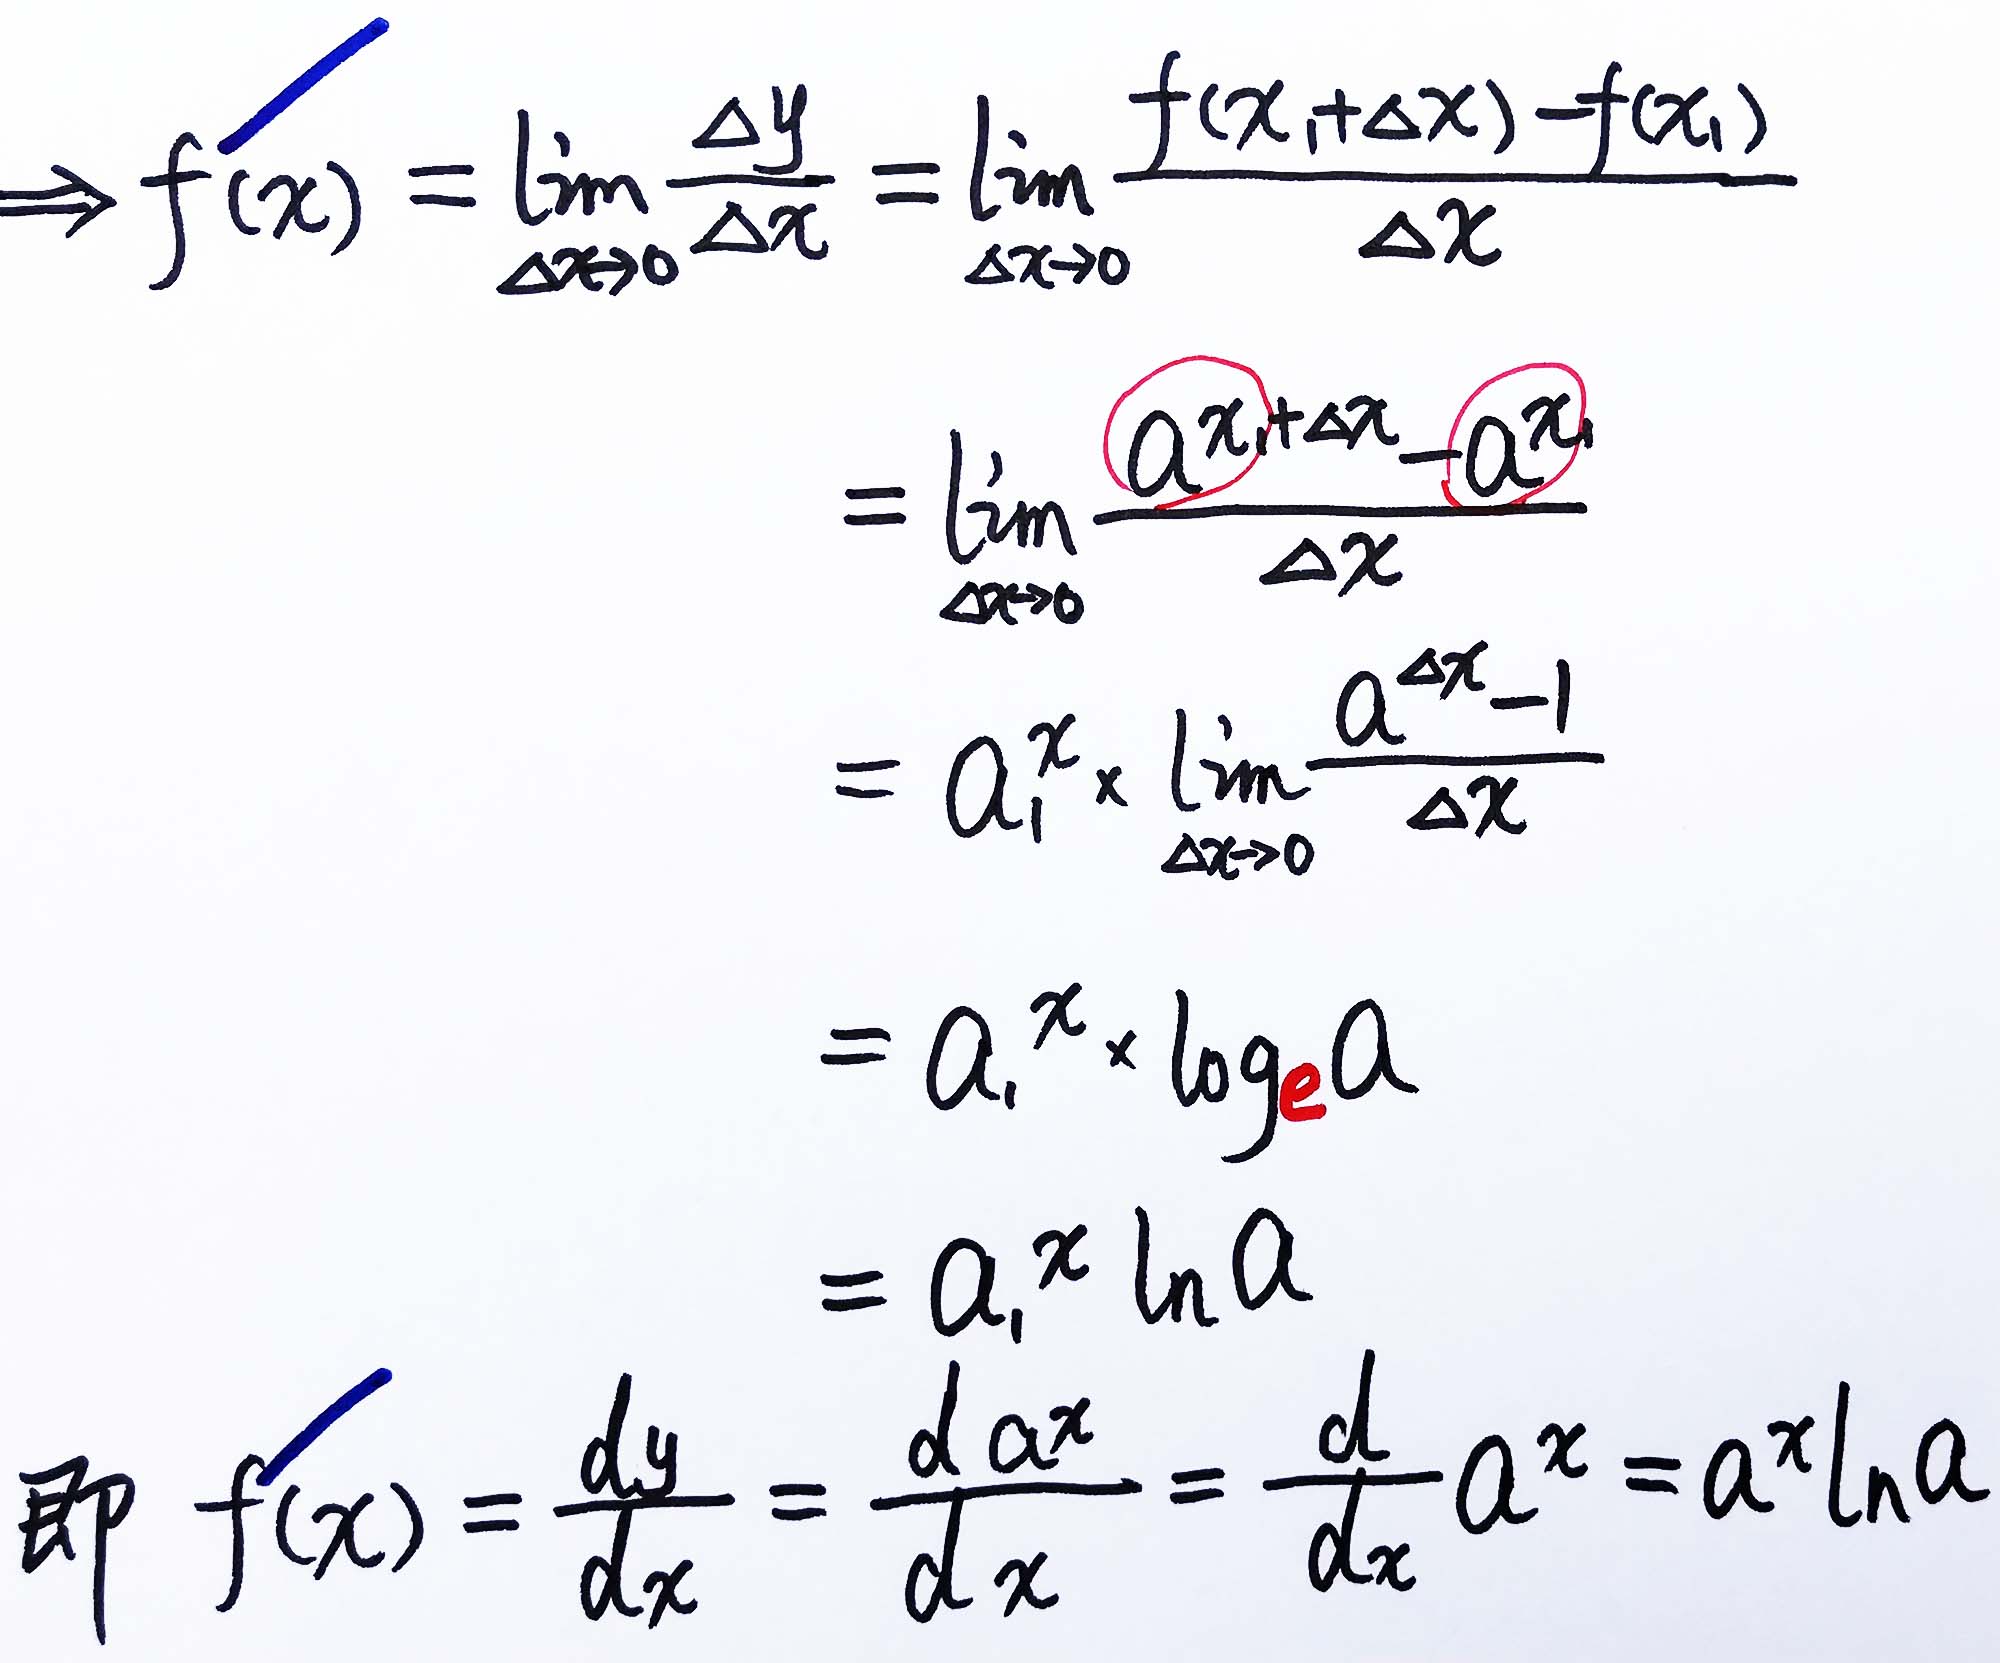 ⇒ f′(x) = lim_{Δx→0} Δy/Δx = lim_{Δx→0} (f(x₁+Δx) − f(x₁))/Δx
= lim_{Δx→0} (a^{x₁+Δx} − a^{x₁})/Δx
= a₁^x × lim_{Δx→0} (a^{Δx} − 1)/Δx
= a₁^x × log_e a
= a₁^x ln a
即 f′(x) = dy/dx = d a^x/d x = d/dx a^x = a^x ln a